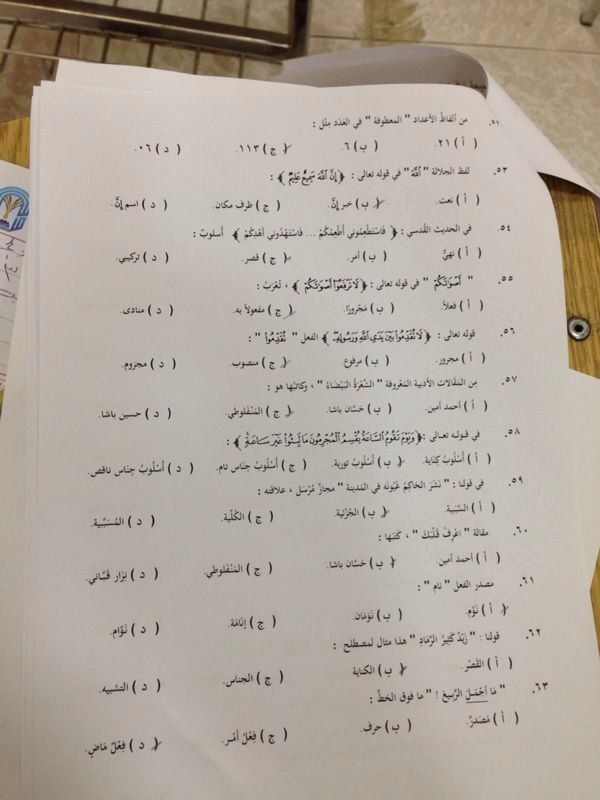 ٥١. من ألفاظ الأعداد " المعطوفة " في العَدَدِ مِثل :
( أ ) ٢١. ( ب ) ٦. ( ج ) ١١٣. ( د ) ٠٦.
٥٣. لفظ الجلالة " ٱللَّهَ " في قوله تعالى : ﴿ إِنَّ ٱللَّهَ سَمِيعٌ عَلِيمٌ ﴾ :
( أ ) نعت. ( ب ) خبر إنَّ. ( ج ) ظرف مكان. ( د ) اسم إنَّ.
٥٤. في الحديث القُدسي : ﴿ فَاسْتَطْعِمُونِي أُطْعِمْكُمْ ... فَاسْتَهْدُونِي أَهْدِكُمْ ﴾ أسلوبُ :
( أ ) نهيٌ. ( ب ) أمر. ( ج ) قصر. ( د ) تركيبي.
٥٥. " أَصْوَٰتَكُمْ " في قوله تعالى : ﴿ لَا تَرْفَعُوٓا۟ أَصْوَٰتَكُمْ ﴾ ، تُعْرَبُ :
( أ ) فعلاً. ( ب ) مَجْرورًا. ( ج ) مفعولاً به. ( د ) منادى.
٥٦. قوله تعالى : ﴿ لَا تُقَدِّمُوا۟ بَيْنَ يَدَىِ ٱللَّهِ وَرَسُولِهِۦ ﴾ الفعل " تُقَدِّمُوا۟ " :
( أ ) مجرور. ( ب ) مرفوع. ( ج ) منصوب. ( د ) مجزوم.
٥٧. مِن المَقالات الأدبية المَعْروفة " الشَّعْرَةُ البَيْضَاءُ " ، وكاتبُها هو :
( أ ) أحمد أمين. ( ب ) حَسَّان باشا. ( ج ) المَنْفلوطي. ( د ) حسين باشا.
٥٨. في قولـه تعـالى : ﴿ وَيَوْمَ تَقُومُ ٱلسَّاعَةُ يُقْسِمُ ٱلْمُجْرِمُونَ مَا لَبِثُوا۟ غَيْرَ سَاعَةٍ ﴾ :
( أ ) أُسْلُوبُ كِنَايَة. ( ب ) أُسْلُوبُ تورية. ( ج ) أُسْلُوبُ جِنَاس تام. ( د ) أُسْلُوبُ جِنَاس ناقص.
٥٩. في قولنا : " نَشَرَ الحَاكِمُ عُيُونَه في المَدينة " مجازٌ مُرْسَل ، علاقته :
( أ ) السَّبَبِية. ( ب ) الجُزْئية. ( ج ) الكُلّية. ( د ) المُسَبَّبِية.
٦٠. مقالة " اعْرِفْ قَلْبَكَ " ، كَتَبَها :
( أ ) أحمد أمين. ( ب ) حَسَّان باشا. ( ج ) المَنْفَلوطي. ( د ) نِزَار قَبَّاني.
٦١. مصدر الفعل " نام " :
( أ ) نَوْم. ( ب ) نَوَمَان. ( ج ) إنَامَة. ( د ) نَوَّام.
٦٢. قولنا : " زَيْدٌ كَثِيرُ الرَّمَادِ " هذا مثال لمصطلح :
( أ ) القَصْر. ( ب ) الكناية ( ج ) الجناس. ( د ) التشبيه.
٦٣. " مَا أجْمَلَ الرَّبِيعَ ! " ما فوق الخطّ :
( أ ) مَصْدَرٌ. ( ب ) حرف. ( ج ) فِعْلُ أمْر. ( د ) فِعْلُ مَاضٍ.